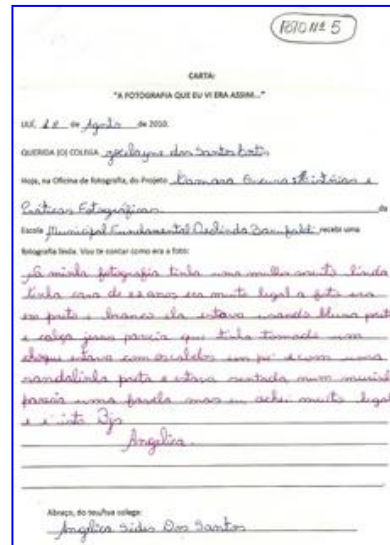 FOTO Nº 5
CARTA:
"A FOTOGRAFIA QUE EU VI ERA ASSIM..."
IJUÍ, 12 de Agosto de 2010.
QUERIDA (O) COLEGA dos Santos
Hoje, na Oficina de fotografia, do Projeto Camara e
Práticas Fotográficas da
Escola Municipal Fundamental Deolinda recebi uma
fotografia linda. Vou te contar como era a foto:
Na minha fotografia tinha uma mulher muito linda
tinha cara de 22 anos era muito legal a foto era
em preto e branco ela estava usando blusa preta
e calça jeans parecia que tinha tomado um
choque estava com os cabelos em pé e com uma
sandalinha preta e estava sentada num
parecia uma favela mas eu achei muito legal
e é isto Bjs
Angélica.
Abraço, do seu/sua colega:
Angélica Dos Santos